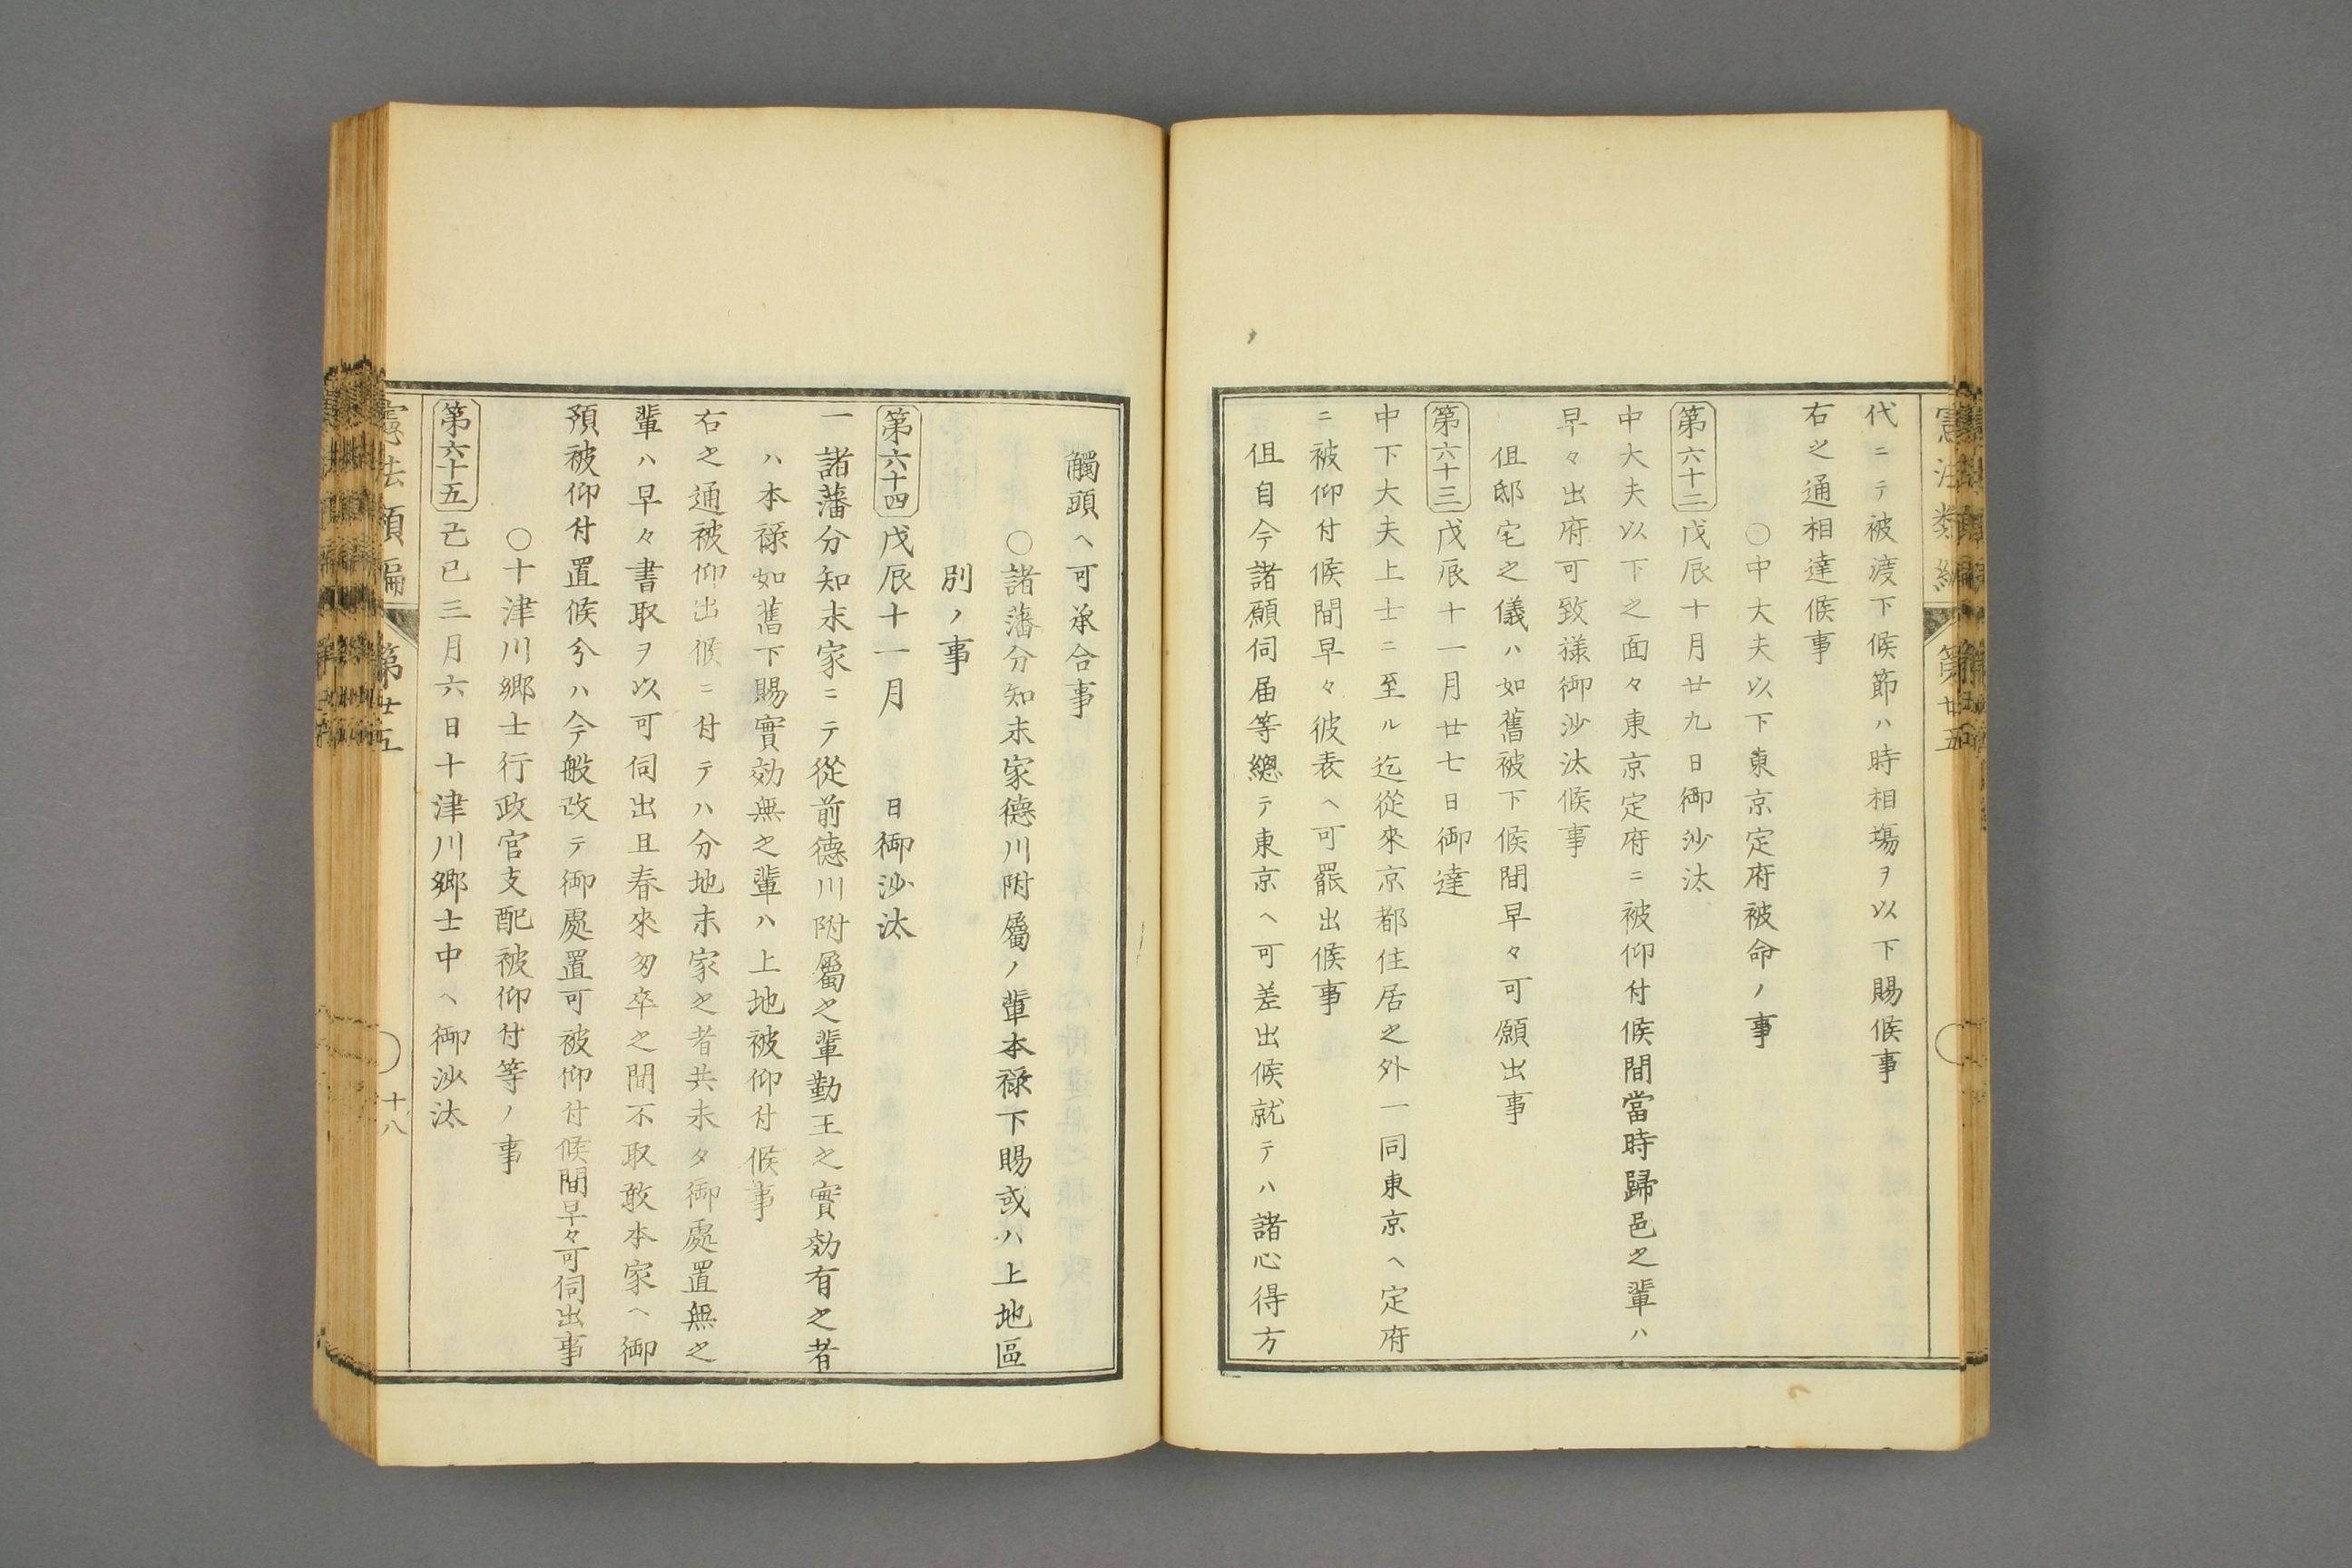 憲法類編
第廿五
代ニテ被渡下候節ハ時相塲ヲ以下賜候事
右之通相達候事
○中大夫以下東京定府被命ノ事
第六十二 戊辰十月廿九日御沙汰
中大夫以下之面々東京定府ニ被仰付候間當時歸邑之輩ハ
早々出府可致様御沙汰候事
但邸宅之儀ハ如舊被下候間早々可願出事
第六十三 戊辰十一月廿七日御達
中下大夫上士ニ至ル迄從來京都住居之外一同東京ヘ定府
ニ被仰付候間早々彼表ヘ可罷出候事
但自今諸願伺届等總テ東京ヘ可差出候就テハ諸心得方
觸頭ヘ可承合事
○諸藩分知末家德川附屬ノ輩本祿下賜或ハ上地區
別ノ事
第六十四 戊辰十一月 日御沙汰
一諸藩分知末家ニテ從前德川附屬之輩勤王之實効有之者
ハ本祿如舊下賜實効無之輩ハ上地被仰付候事
右之通被仰出候ニ付テハ分地末家之者共未タ御處置無之
輩ハ早々書取ヲ以可伺出且春來匆卒之間不取敢本家ヘ御
預被仰付置候分ハ今般改テ御處置可被仰付候間早々可伺出事
○十津川郷士行政官支配被仰付等ノ事
第六十五 己巳三月六日十津川郷士中ヘ御沙汰
憲法類編
第廿五
十八